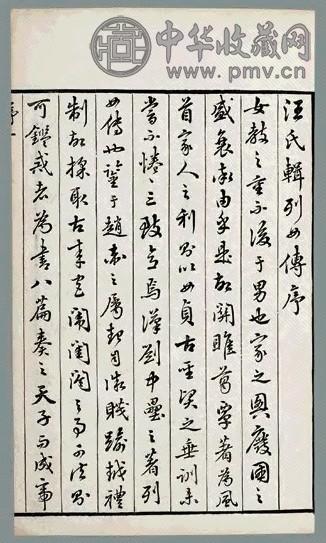 中华收藏网
www.pmv.cn
汪氏輯列女傳序
女教之重不後于男也家之興廢國之
盛衰由乎是故關雎葛覃著為風
首家人之利則以女貞古聖之垂訓未
嘗不惓惓三致意焉漢劉中壘之著列
女傳也鑒于趙之屬起自微賤踰越禮
制故採取古來宮闈閨閣之事可法則
可鑑戒者為書八篇奏之天子而成帝
序一